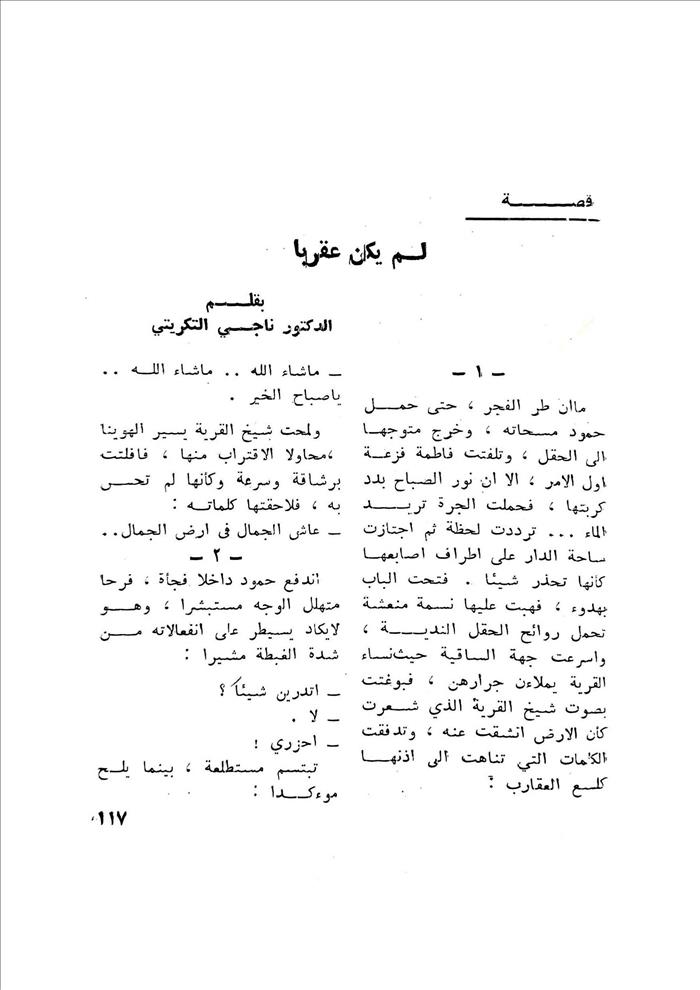 قصة
لم يكن عقربا
بقلم
الدكتور ناجي التكريتي
- ١ -
ماان طر الفجر ، حتى حمل
حمود مسحاته ، وخرج متوجها
الى الحقل ، وتلفتت فاطمة فزعة
اول الامر ، الا ان نور الصباح بدد
كربتها ، فحملت الجرة تريد
الماء ... ترددت لحظة ثم اجتازت
ساحة الدار على اطراف اصابعها
كأنها تحذر شيئا . فتحت الباب
بهدوء ، فهبت عليها نسمة منعشة
تحمل روائح الحقل الندية ،
واسرعت جهة الساقية حيث نساء
القرية يملاءن جرارهن ، فبوغتت
بصوت شيخ القرية الذي شعرت
كأن الارض انشقت عنه ، وتدفقت
الكلمات التي تناهت الى اذنها
كلسع العقارب :
- ماشاء الله .. ماشاء الله ..
ياصباح الخير .
ولمحت شيخ القرية يسير الهوينا
،محاولا الاقتراب منها ، فافلتت
برشاقة وسرعة وكأنها لم تحس
به ، فلاحقتها كلماته :
- عاش الجمال في ارض الجمال..
- ٢ -
اندفع حمود داخلا فجأة ، فرحا
متهلل الوجه مستبشرا ، وهو
لايكاد يسيطر على انفعالاته من
شدة الغبطة مشيرا :
- اتدرين شيئا ؟
- لا .
- احزري !
تبتسم مستطلعة ، بينما يلح
موءكدا :
١١٧